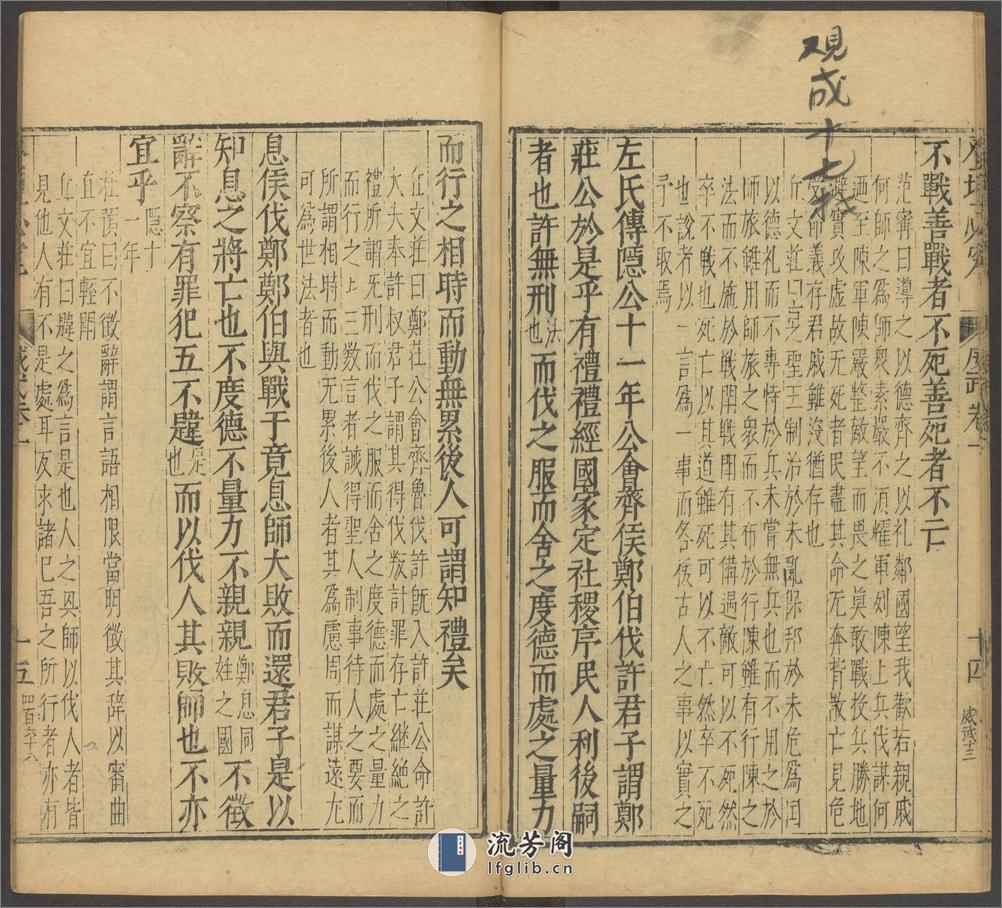 观成十七
不戰善戰者不死善死者不亡
范甯曰導之以德齊之以礼鄰國望我歡若親戚
何師之爲師衆素嚴不湏耀軍列陳上兵伐謀何
廼至陳軍陳嚴整敵望而畏之莫敢戰投兵勝地
避實攻虚故無死者民盡其命而無奔背散亡見危
受命義存君親雖沒猶存也
丘文莊曰聖王制治於未亂保邦於未危爲囯
以德礼而不專恃於兵未嘗無兵也而不用之於
師旅雖用師旅之衆而不布於行陳雖有行陳之
法而不施於戰鬪用戰鬪有其備遇敵可以不死然
卒不戰也死亡以其道雖死可以不亡然卒不死
也說者以一言爲一事而各援古人之事以實之
予不取焉
左氏傳隱公十一年公會齊侯鄭伯伐許君子謂鄭
莊公於是乎有禮禮經國家定社稷序民人利後嗣
者也許無刑法也而伐之服而舍之度德而處之量力
十四
而行之相時而動無累後人可謂知禮矣
丘文莊曰鄭莊公會齊魯伐許旣入許莊公命許
大夫奉許叔君子謂其得伐叛討罪存亡继绝之
禮所謂旡刑而伐之服而舍之度德而處之量力
而行之上三数言者誠得聖人制事待人之要而
所謂相時而動无累後人者其爲慮周而謀遠尤
可爲世法者也
息侯伐鄭鄭伯與戰于竟息師大敗而還君子是以
知息之將亡也不度德不量力不親親鄭息同姓之國不徵
辭不察有罪犯五不韙是也而以伐人其敗師也不亦
宜乎隱十一年
杜預曰不徵辭謂言語相恨當明徵其辞以審曲
直不宜輕鬪
丘文莊曰韙之爲言是也人之興師以伐人者皆
見他人有不是處耳反求諸己吾之所行者亦有
十五
四百六十八
流芳阁
lfglib.cn